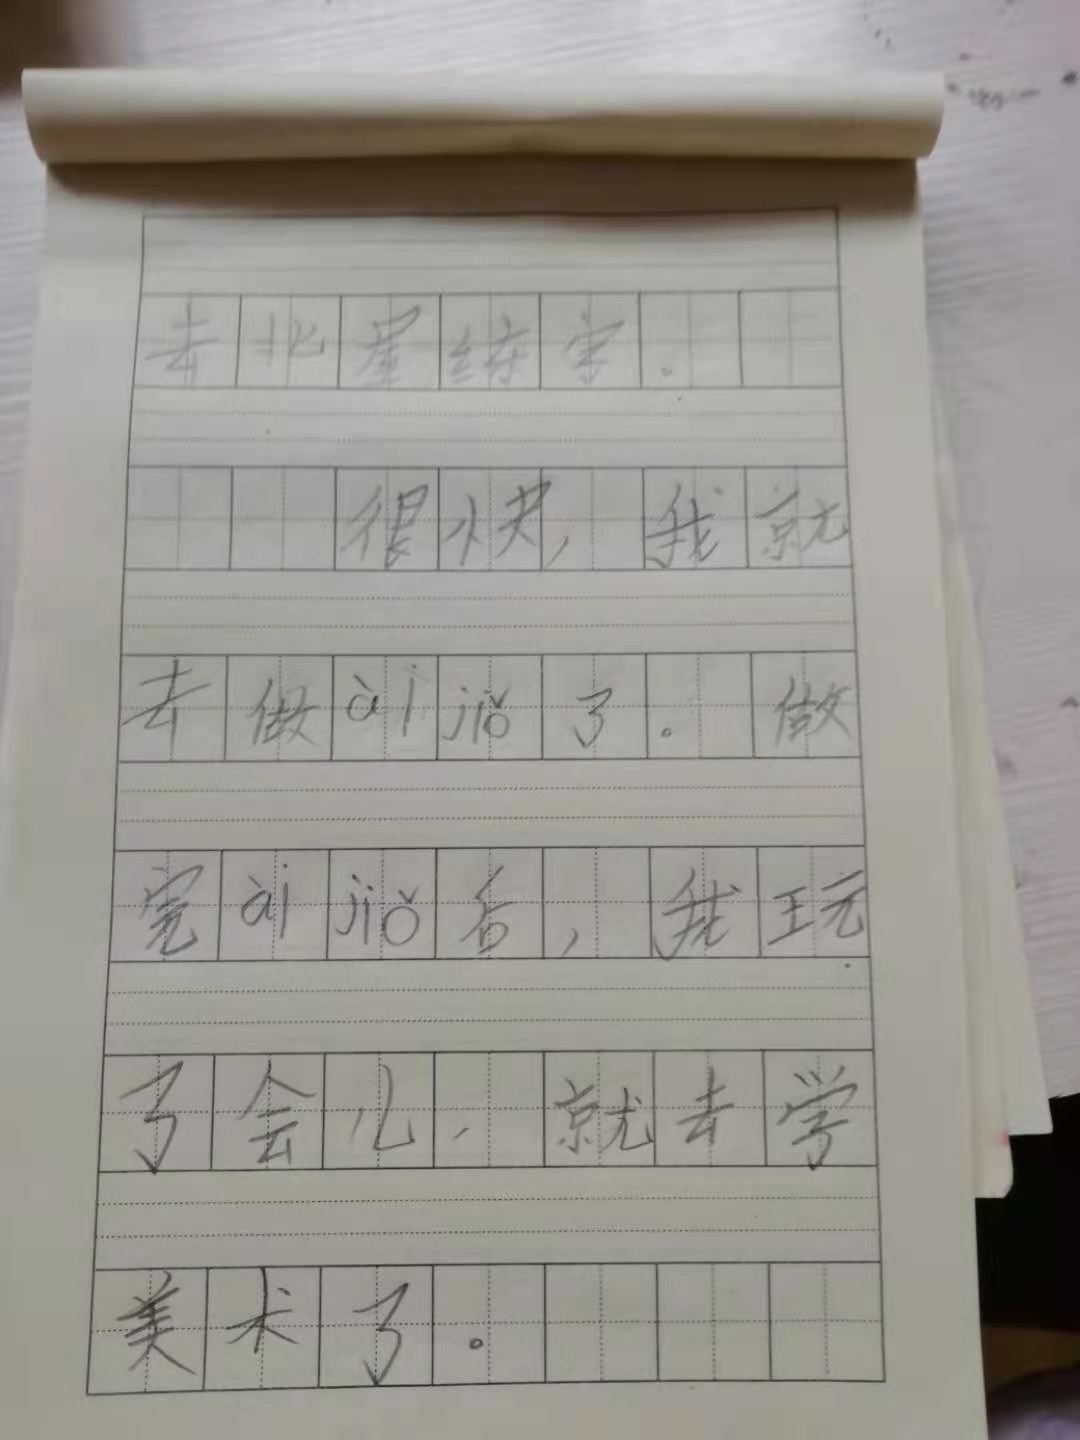 去北屋练字。
很快,我就
去做ài jiǒ了。做
完ài jiǒ后,我玩
了会儿,就去学
美术了。